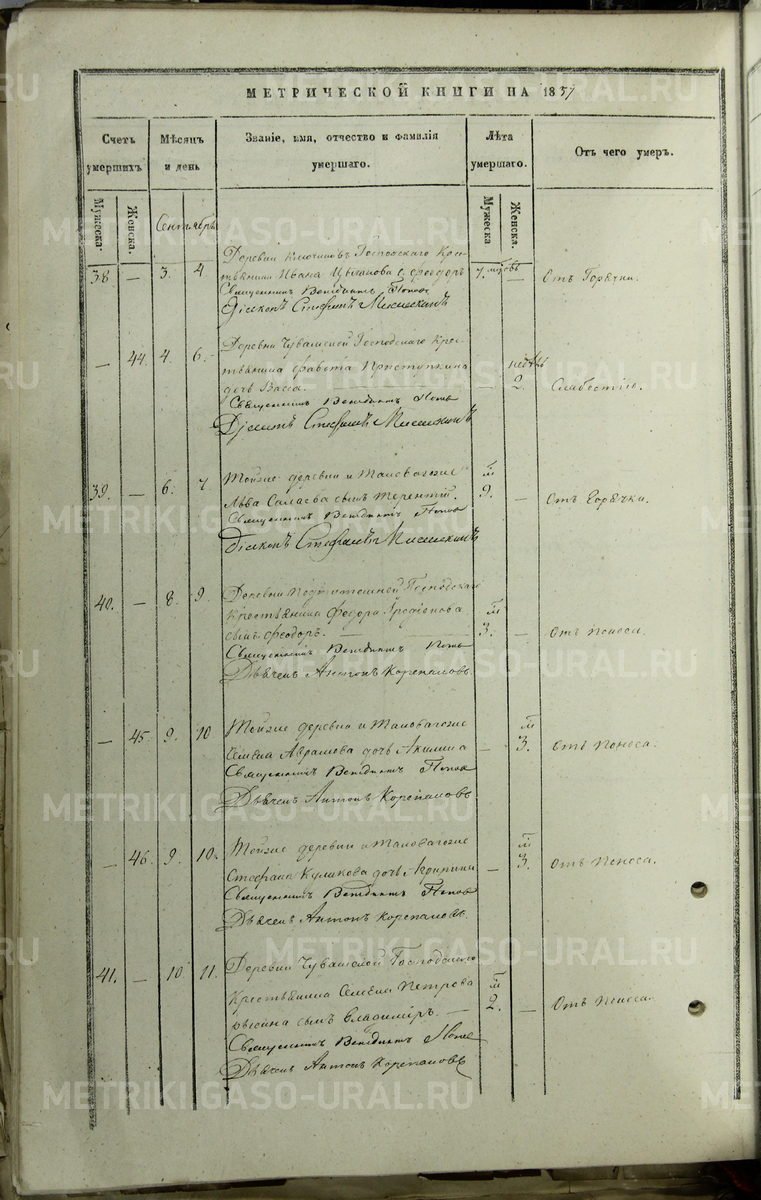 МЕТРИЧЕСКОЙ КНИГИ НА 1837
Счетъ умершихъ
Мѣсяцъ и день
Званіе, имя, отчество и фамилія умершаго.
Лѣта умершаго.
Отъ чего умеръ.
Мужеска.
Женска.
Мужеска
Женска.
Сентябрь
Деревни Господскаго Кре-
38 — 3. 4. стьянина Ивана с: Ѳеодоръ 7. Отъ Горячки.
Священникъ Венедиктъ Попов
Діяконъ Стефанъ
Деревни Чувашской Господскаго Крес-
— 44. 4. 6. тьянина
дочь Васса. — 2. Слабостію.
Священникъ Венедиктъ Попов
Діяконъ Стефанъ
39. — 6. 7. Тойже деревни и Таковагоже м
Льва Салаева сынъ Терентій. 9. — Отъ Горячки.
Священникъ Венедиктъ Попов
Діяконъ Стефанъ
40. — 8. 9. Деревни Господскаго
Крестьянина Федора м
сынъ Ѳеодоръ. — 3. — Отъ Поноса.
Священникъ Венедиктъ Попов
Дьячек Антонъ Корепановъ
— 45. 9. 10 Тойже деревни и Таковагоже м
Семена Аврамова дочь Акилина — 3. Отъ Поноса.
Священникъ Венедиктъ Попов
Дьячек Антонъ Корепановъ.
— 46. 9. 10. Тойже деревни и Таковагоже м
Стефана Куликова дочь — 3. Отъ Поноса.
Священникъ Венедиктъ Попов
Дьячек Антонъ Корепановъ.
41. — 10 11. Деревни Чувашской Господскаго
Крестьянина Семена Петрова м
сынъ Владиміръ. — 2. — Отъ Поноса.
Священникъ Венедиктъ Попов
Дьячек Антонъ Корепановъ
METRIKI.GASO-URAL.RU